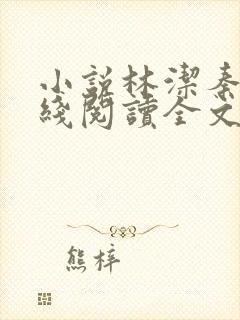 小說林潔秦
綫閱讀全文
熊梓